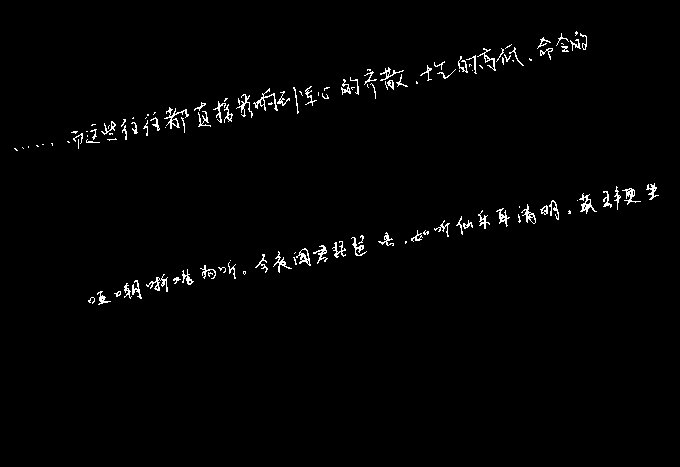 ……，而这些往往都直接影响到军心的齐散、士气的高低、命令的
哑嘲哳难为听。今夜闻君琵琶语，如听仙乐耳清明。莫辞更坐